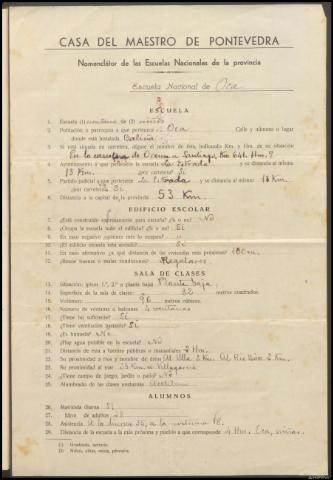 CASA DEL MAESTRO DE PONTEVEDRA
Nomenclátor de las Escuelas Nacionales de la provincia
Escuela Nacional de Oca
ESCUELA
1. Escuela (1) unitaria de (2) niños
2. Población o parroquia a que pertenece Oca Calle y número o lugar
donde está instalada
3. Si está situada en carretera, digase el nombre de ésta, indicando Km. y Hm. de su situación
En la carretera de Orense a Santiago, Km 641. Hm. 7
4. Ayuntamiento a que pertenece La Estrada y se distancia al mismo
13 Km. ¿por carretera? Si
5. Partido judicial a que pertenece La Estrada y su distancia al mismo 13 Km
¿por carretera? Si
6. Distancia a la capital de la provincia 53 Km.
EDIFICIO ESCOLAR
7. ¿Está construído expresamente para escuela? ¿Si o no? No
8. ¿Ocupa la escuela todo el edificio? ¿Si o no? Si
9. En caso negativo ¿quiénes más lo ocupan?
10. ¿El edificio escuela está aislado? Si
11. En caso afirmativo ¿a qué distancia de las viviendas más próximas? 100 m.
12. ¿Reune buenas o malas condiciones? Regulares
SALA DE CLASES
13. Situación: (pisos 1.º, 2.º o planta baja) Planta baja
14. Superficie de la sala de clases: 32 metros cuadrados.
15. Volúmen: 96 metros cúbicos.
16. Número de ventanas o balcones 4 ventanas
17. ¿Tiene luz suficiente? Si
18. ¿Tiene ventilación bastante? Si
19. ¿Es húmeda? No
20. ¿Hay agua potable en la escuela? No
21. Distancia de ésta a fuentes públicas o manantiales 2 Hm.
22. Su proximidad al río y nombre de éstos Al Ulla 3 Km. Al 2 Km.
23. Su proximidad al mar 35 Km a Villagarcía
24. ¿Tiene campo de juego, jardín o patio? No
25. Alumbrado de las clases nocturnas
ALUMNOS
26. Matrícula diurna 51
27. Idem de adultos 28
28. Asistencia A la diurna 35, a la nocturna 18.
29. Distancia de la escuela a la más próxima y pueblo a que corresponde 4 Hm. Oca, niñas.
1) Graduada, unitaria
2) Niños, niñas, mixta, párvulos